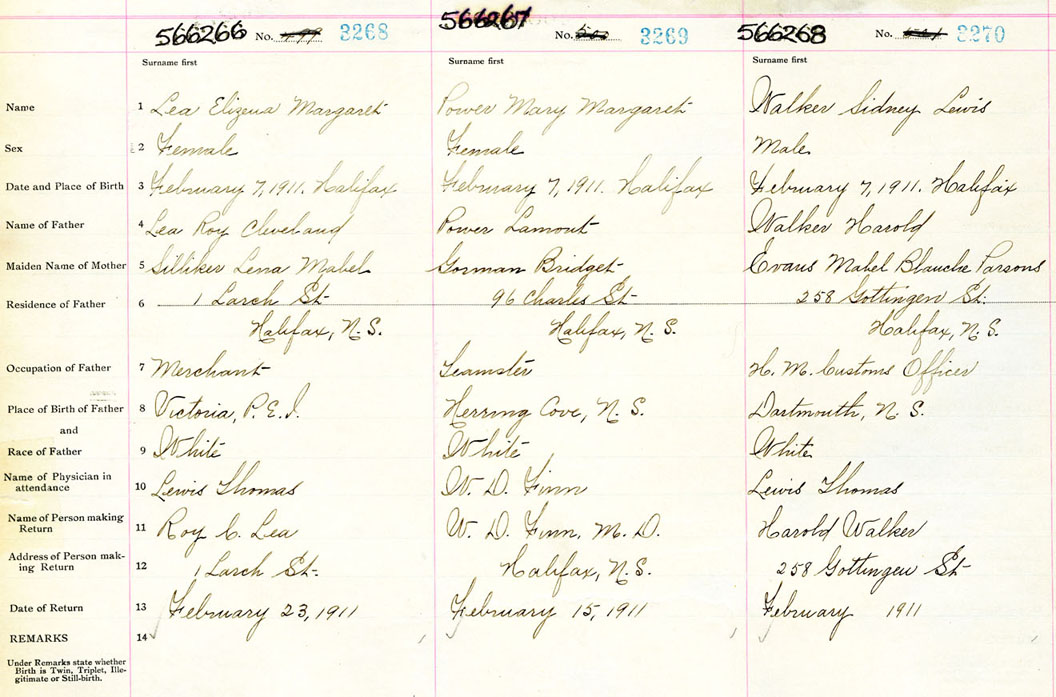 566266 No. 3268 566267 No. 3269 566268 No. 3270
Surname first Surname first Surname first
Name 1 Lea Elizena Margaret Power Mary Margaret Walker Sidney Lewis
Sex 2 Female Female Male
Date and Place of Birth 3 February 7, 1911. Halifax February 7, 1911. Halifax February 7, 1911. Halifax
Name of Father 4 Lea Roy Cleveland Power Lamont Walker Harold
Maiden Name of Mother 5 Silliker Lena Mabel Gorman Bridget Evans Mabel Blanche Parsons
Residence of Father 6 1 Larch St. 96 Charles St. 258 Gottingen St.
Halifax, N.S. Halifax, N.S. Halifax, N.S.
Occupation of Father 7 Merchant Teamster H. M. Customs Officer
Place of Birth of Father 8 Victoria, P.E.I. Herring Cove, N.S. Dartmouth, N.S.
and
Race of Father 9 White White White
Name of Physician in
attendance 10 Lewis Thomas W. D. Finn Lewis Thomas
Name of Person making
Return 11 Roy C. Lea W. D. Finn, M.D. Harold Walker
Address of Person mak-
ing Return 12 1 Larch St. Halifax, N.S. 258 Gottingen St
Date of Return 13 February 23, 1911 February 15, 1911 February 1911
REMARKS 14
Under Remarks state whether
Birth is Twin, Triplet, Ille-
gitimate or Still-birth.